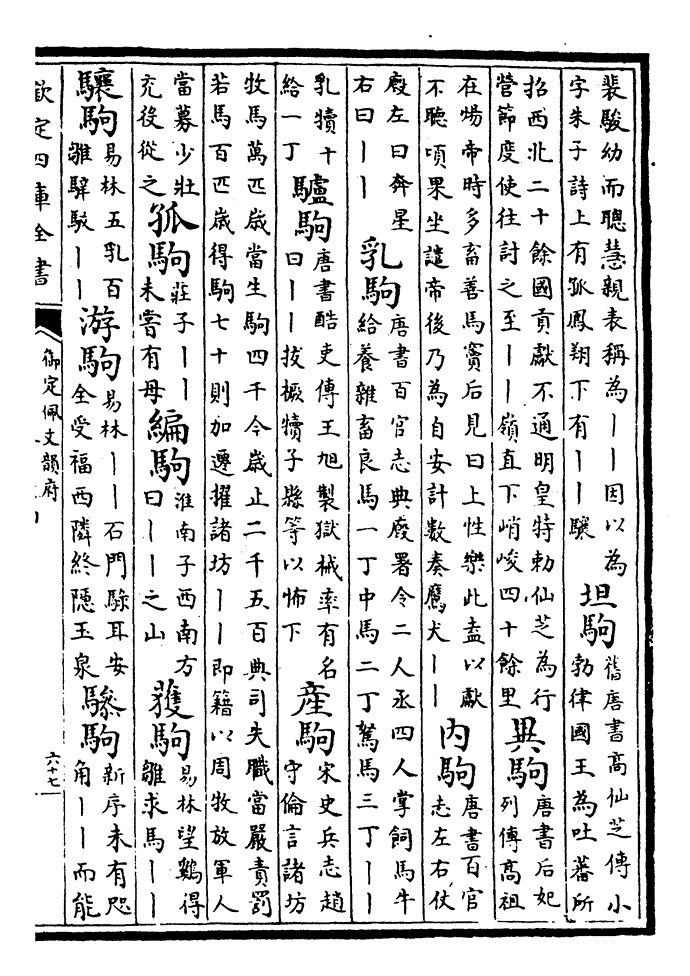 裴駿幼而聰慧親表稱為｜｜因以為
字朱子詩上有孤鳳翔下有｜｜驤
坦駒
舊唐書高仙芝傳小
勃律國王為吐蕃所
招西北二十餘國貢獻不通明皇特勅仙芝為行
營節度使往討之至｜｜嶺直下峭峻四十餘里
異駒
唐書后妃
列傳高祖
在煬帝時多畜善馬竇后見曰上性樂此盍以獻
不聽頃果坐譴帝後乃為自安計數奏鷹犬｜｜
内駒
唐書百官
志左右仗
廄左曰奔星
右曰｜｜
乳駒
唐書百官志典廄署令二人丞四人掌飼馬牛
給養雜畜良馬一丁中馬二丁駑馬三丁｜｜
乳犢十
給一丁
驢駒
唐書酷吏傳王旭製獄械率有名
曰｜｜拔橛犢子縣等以怖下
產駒
宋史兵志趙
守倫言諸坊
牧馬萬匹歲當生駒四千今歲止二千五百典司失職當嚴責罰
若馬百匹歲得駒七十則加遷擢諸坊｜｜即籍以周牧放軍人
當募少壯
充役從之
孤駒
莊子｜｜
未嘗有母
編駒
淮南子西南方
曰｜｜之山
獲駒
易林望鷄得
雛求馬｜｜
驤駒
易林五乳百
雛驛駁｜｜
游駒
易林｜｜石門騄耳安
全受福西隣終隱玉泉
驂駒
新序未有咫
角｜｜而能
欽定四庫全書
御定佩文韻府
六十七